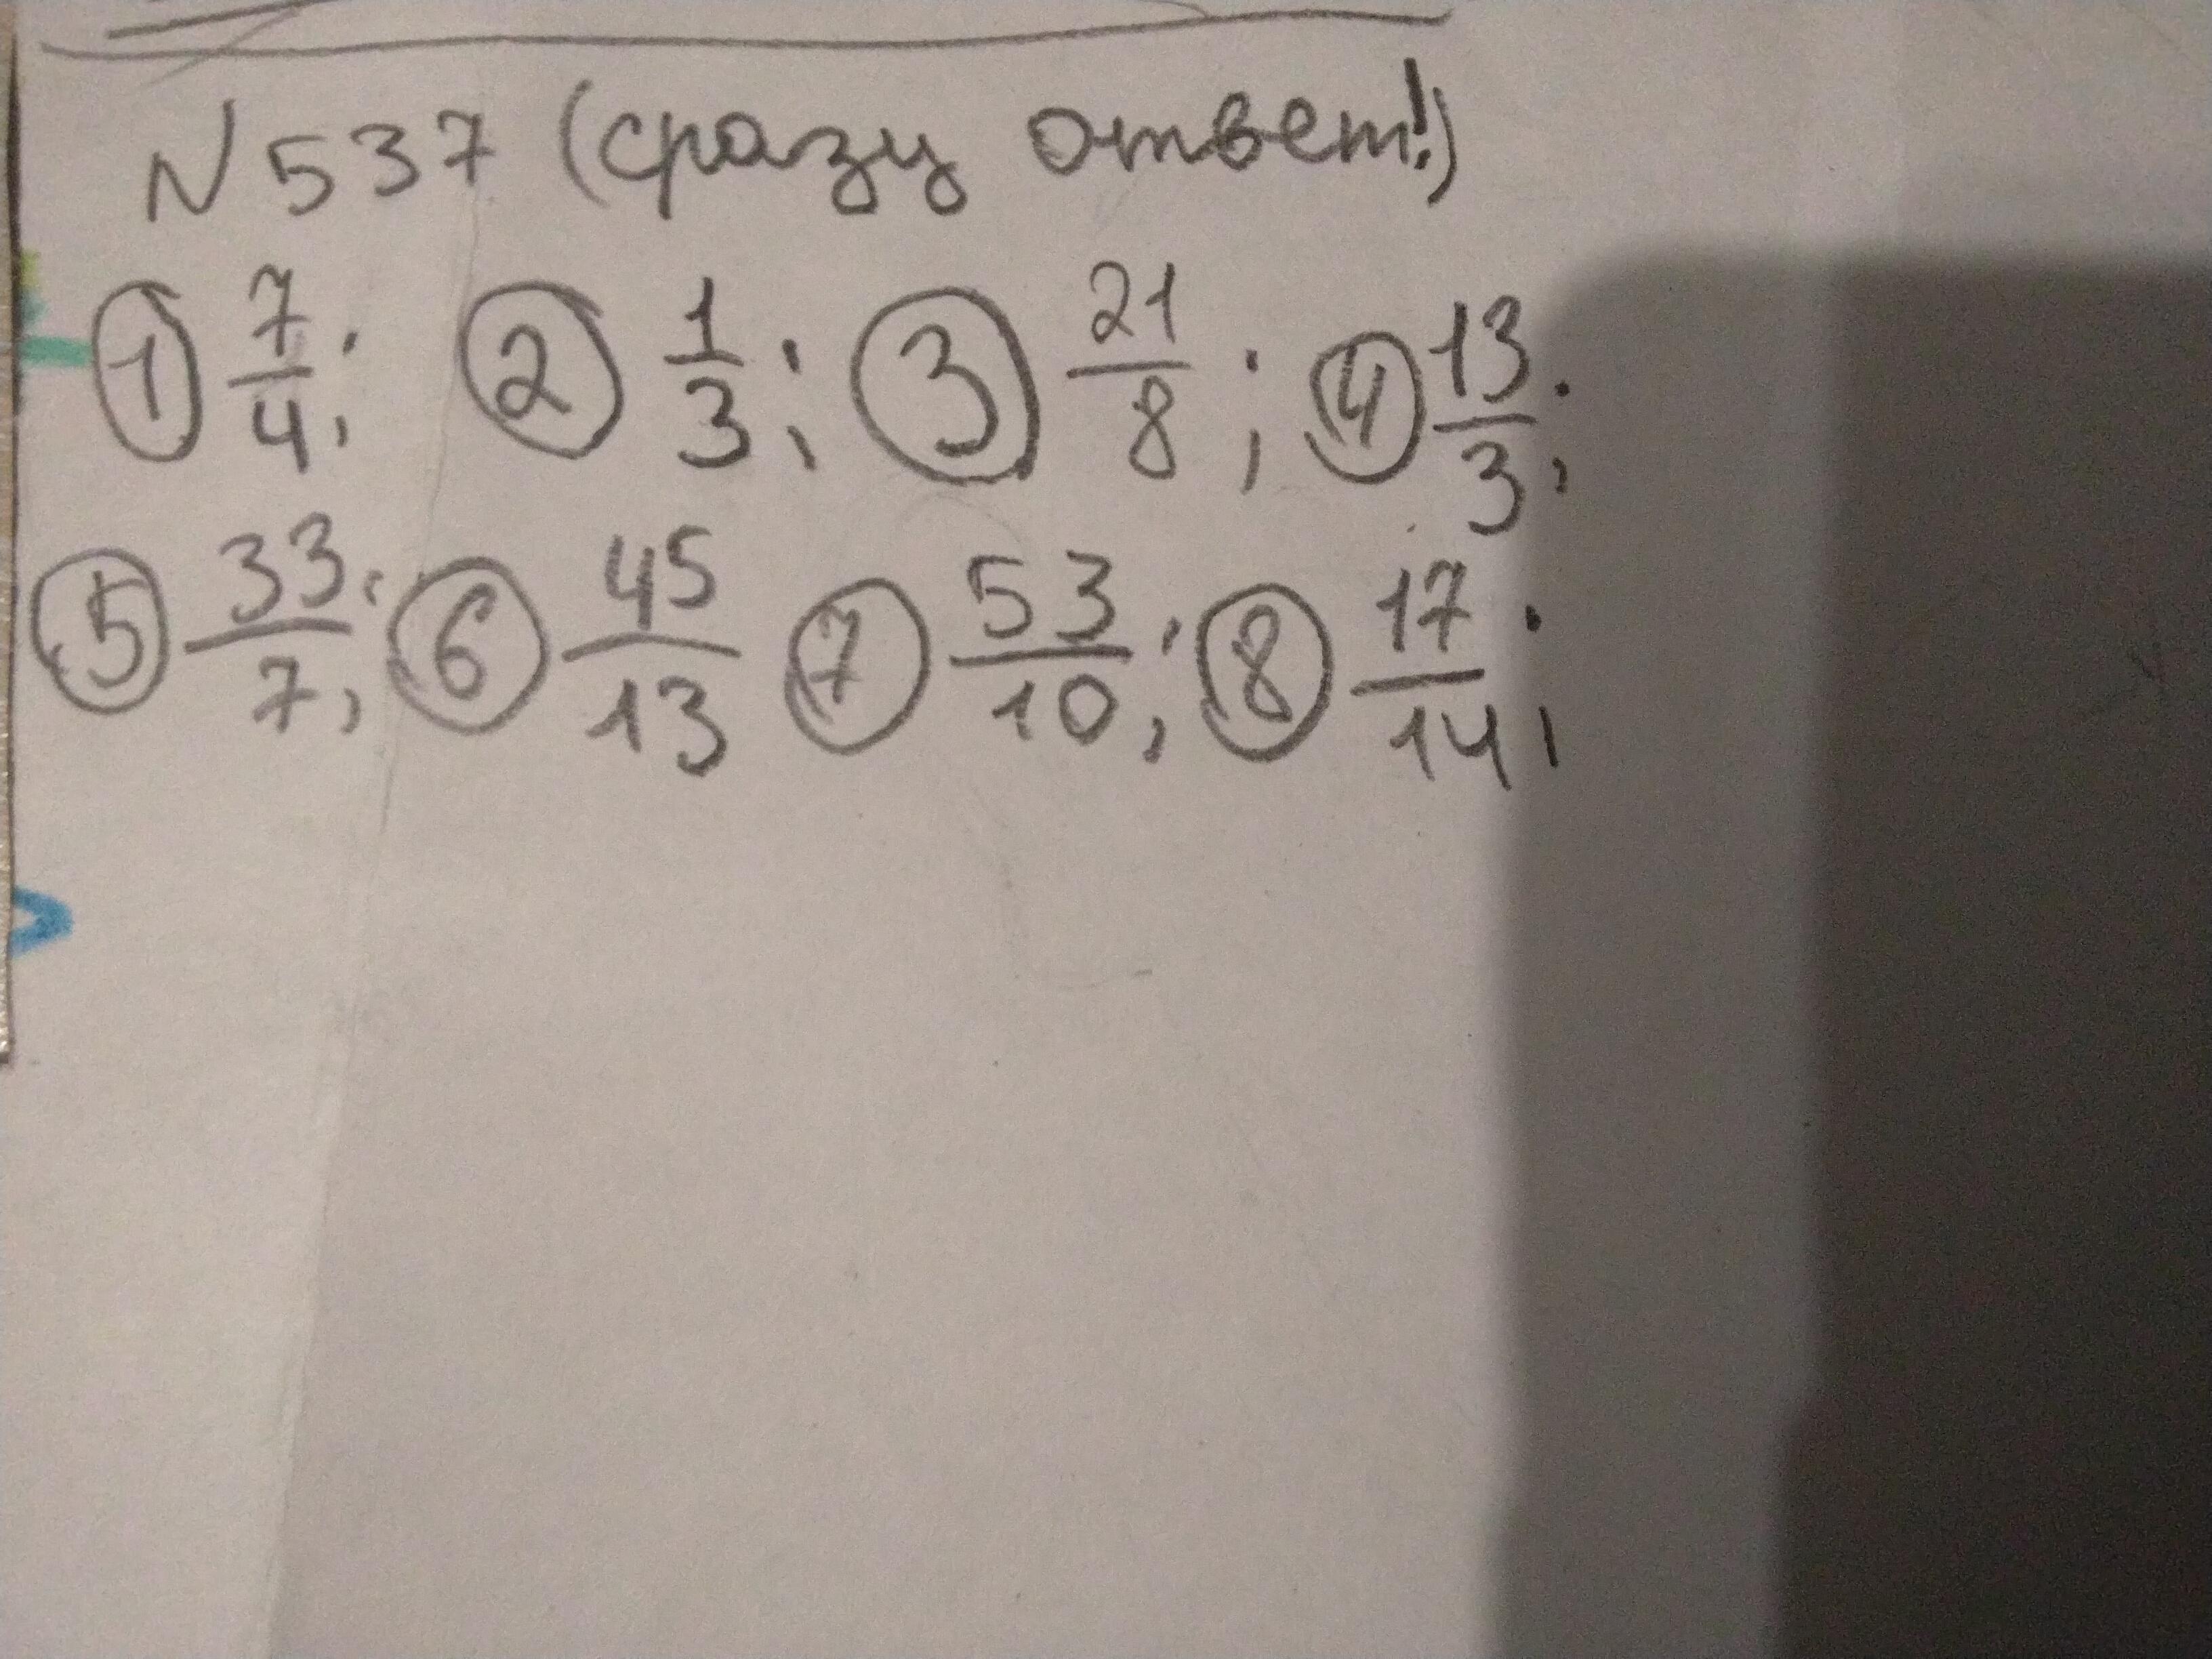 N 537 (сразу ответ!)
① 7/4; ② 1/3; ③ 21/8; ④ 13/3;
⑤ 33/7; ⑥ 45/13 ⑦ 53/10; ⑧ 17/14;